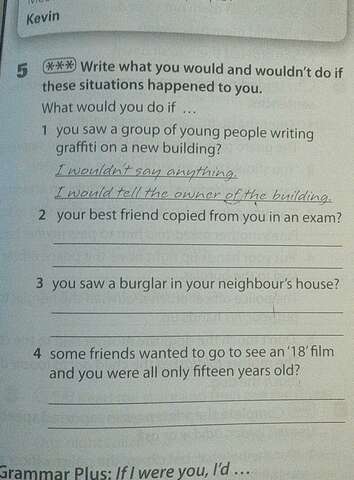 Kevin
5 *** Write what you would and wouldn't do if
these situations happened to you.
What would you do if …
1 you saw a group of young people writing
graffiti on a new building?
I wouldn't say anything.
I would tell the owner of the building.
2 your best friend copied from you in an exam?
3 you saw a burglar in your neighbour's house?
4 some friends wanted to go to see an '18' film
and you were all only fifteen years old?
Grammar Plus: If I were you, I'd …